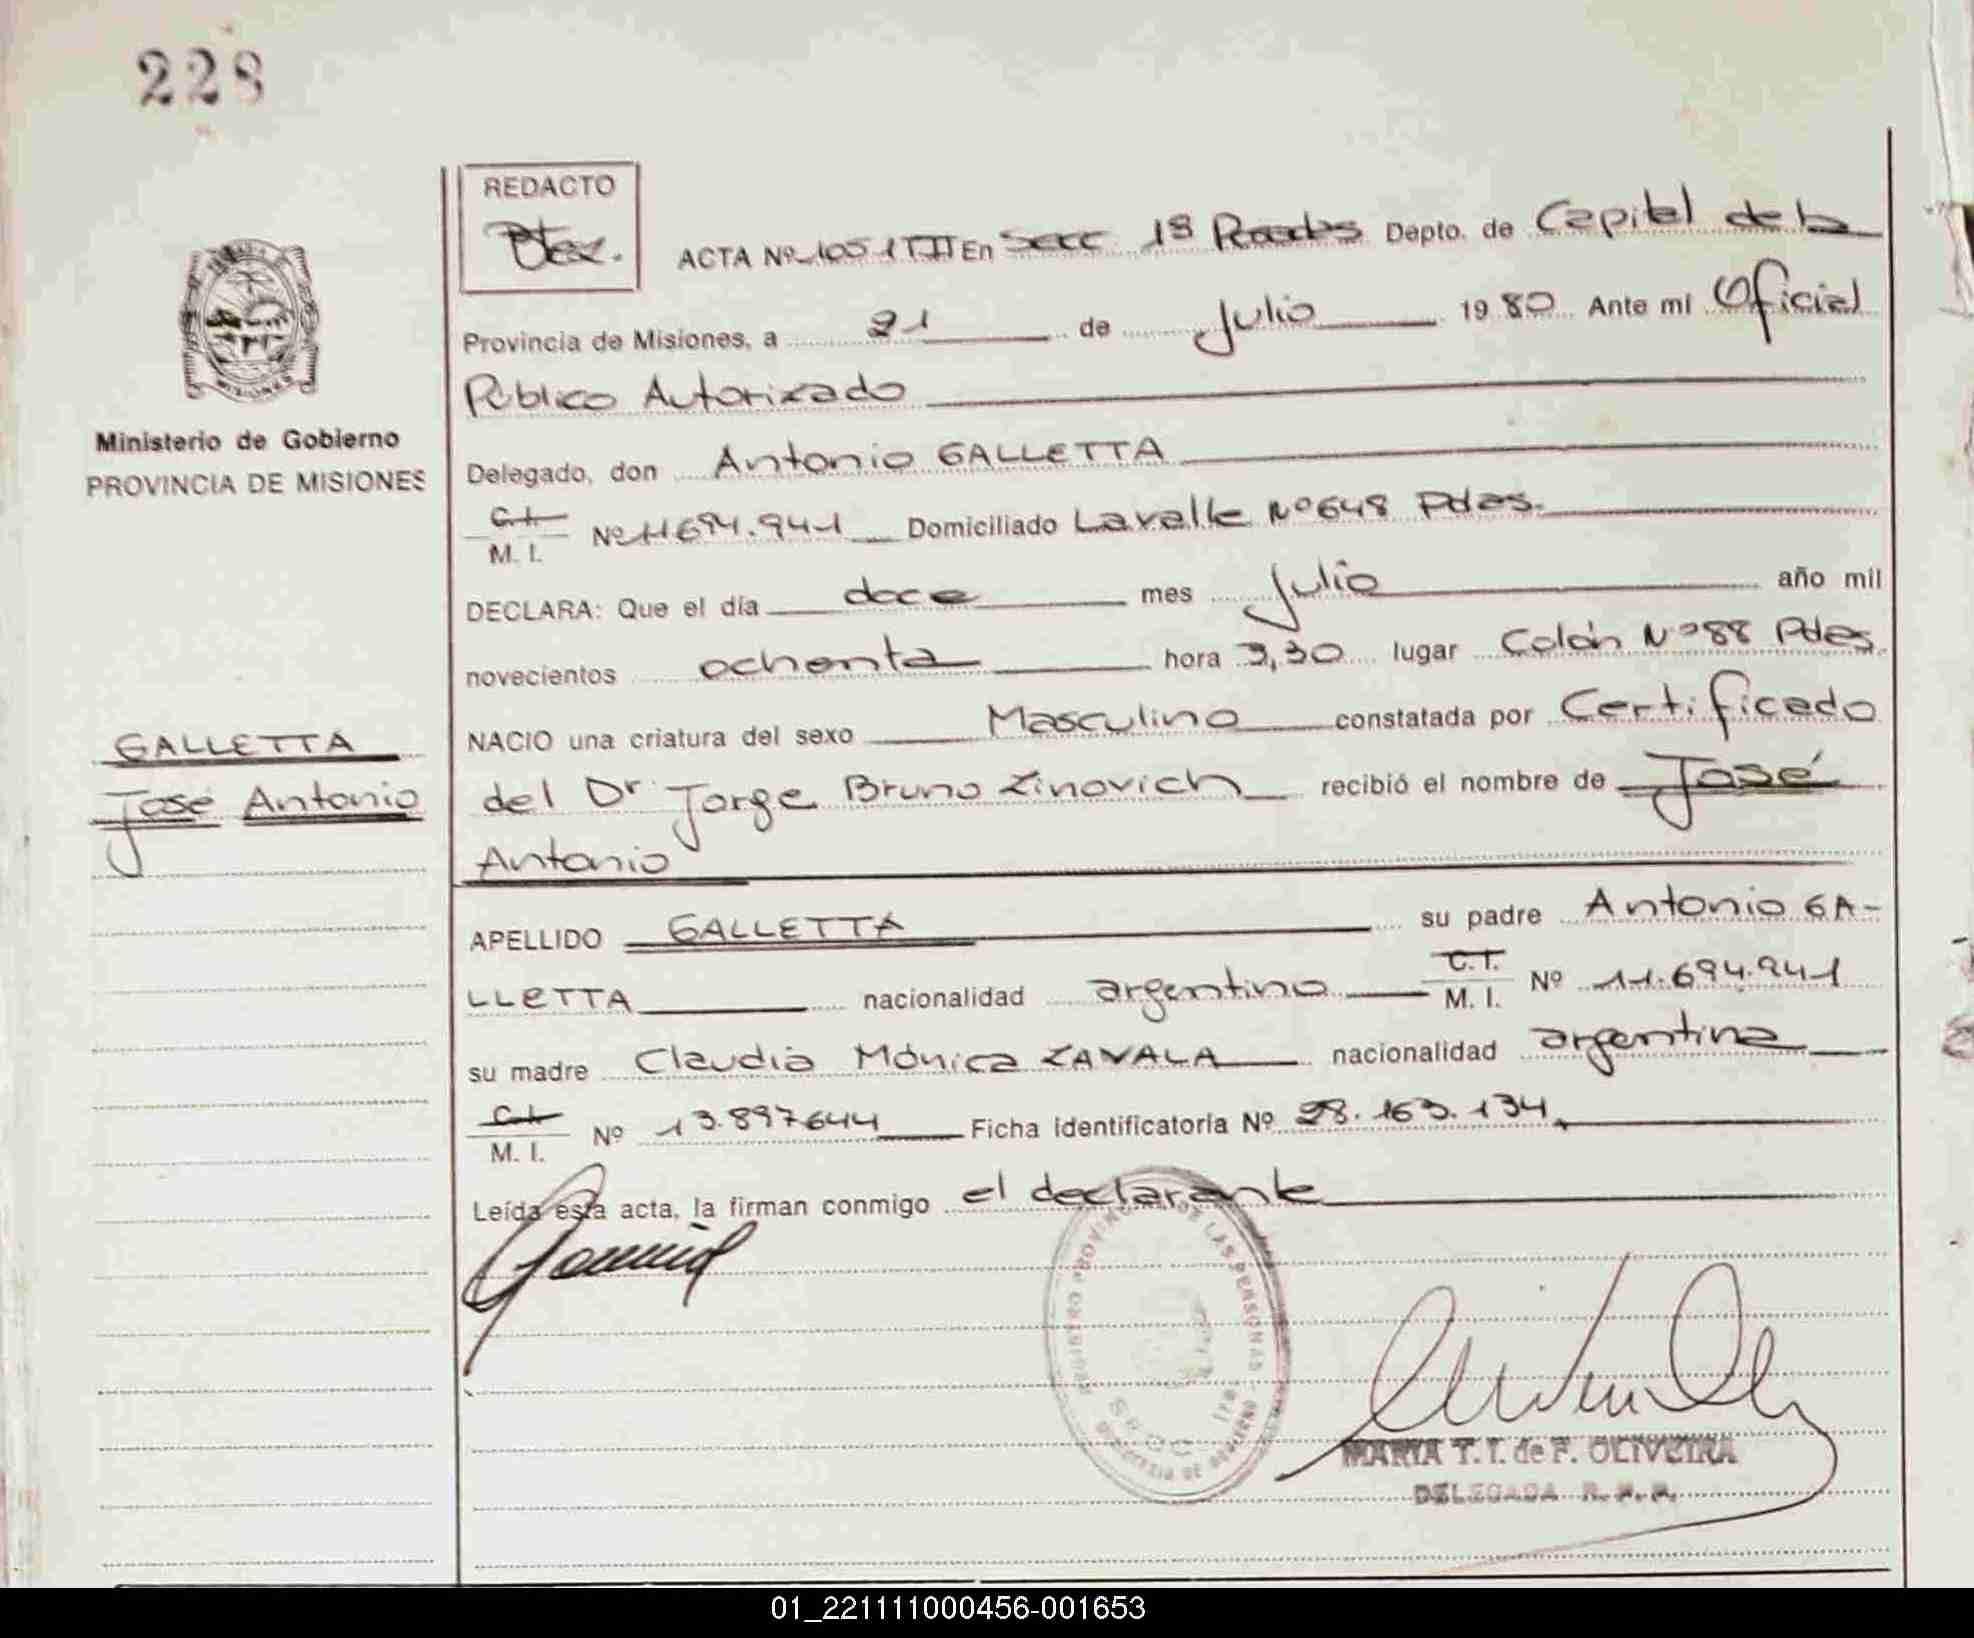 228
REDACTO
ACTA Nº 1051 TII En Secc 1ª Posadas Depto. de Capital de la
Provincia de Misiones, a 21 de Julio 1980 Ante mí Oficial
Público Autorizado
Ministerio de Gobierno
PROVINCIA DE MISIONES
Delegado, don Antonio GALLETTA
C.I.
M. I. Nº 11694.941 Domiciliado Lavalle Nº 648 Pdas.
DECLARA: Que el día doce mes Julio año mil
novecientos ochenta hora 3,30 lugar Colón Nº 88 Pdas.
NACIO una criatura del sexo Masculino constatada por Certificado
GALLETTA
José Antonio
del Dr Jorge Bruno Zinovich recibió el nombre de José
Antonio
APELLIDO GALLETTA su padre Antonio GA-
LLETTA nacionalidad argentino C.I. M. I. Nº 11.694.941
su madre Claudia Mónica ZAVALA nacionalidad argentina
C.I.
M. I. Nº 13.897644 Ficha identificatoria Nº 28.163.134
Leída esta acta, la firman conmigo el declarante
MARIA T. I. de F. OLIVEIRA
DELEGADA R. P. P.
01_221111000456-001653